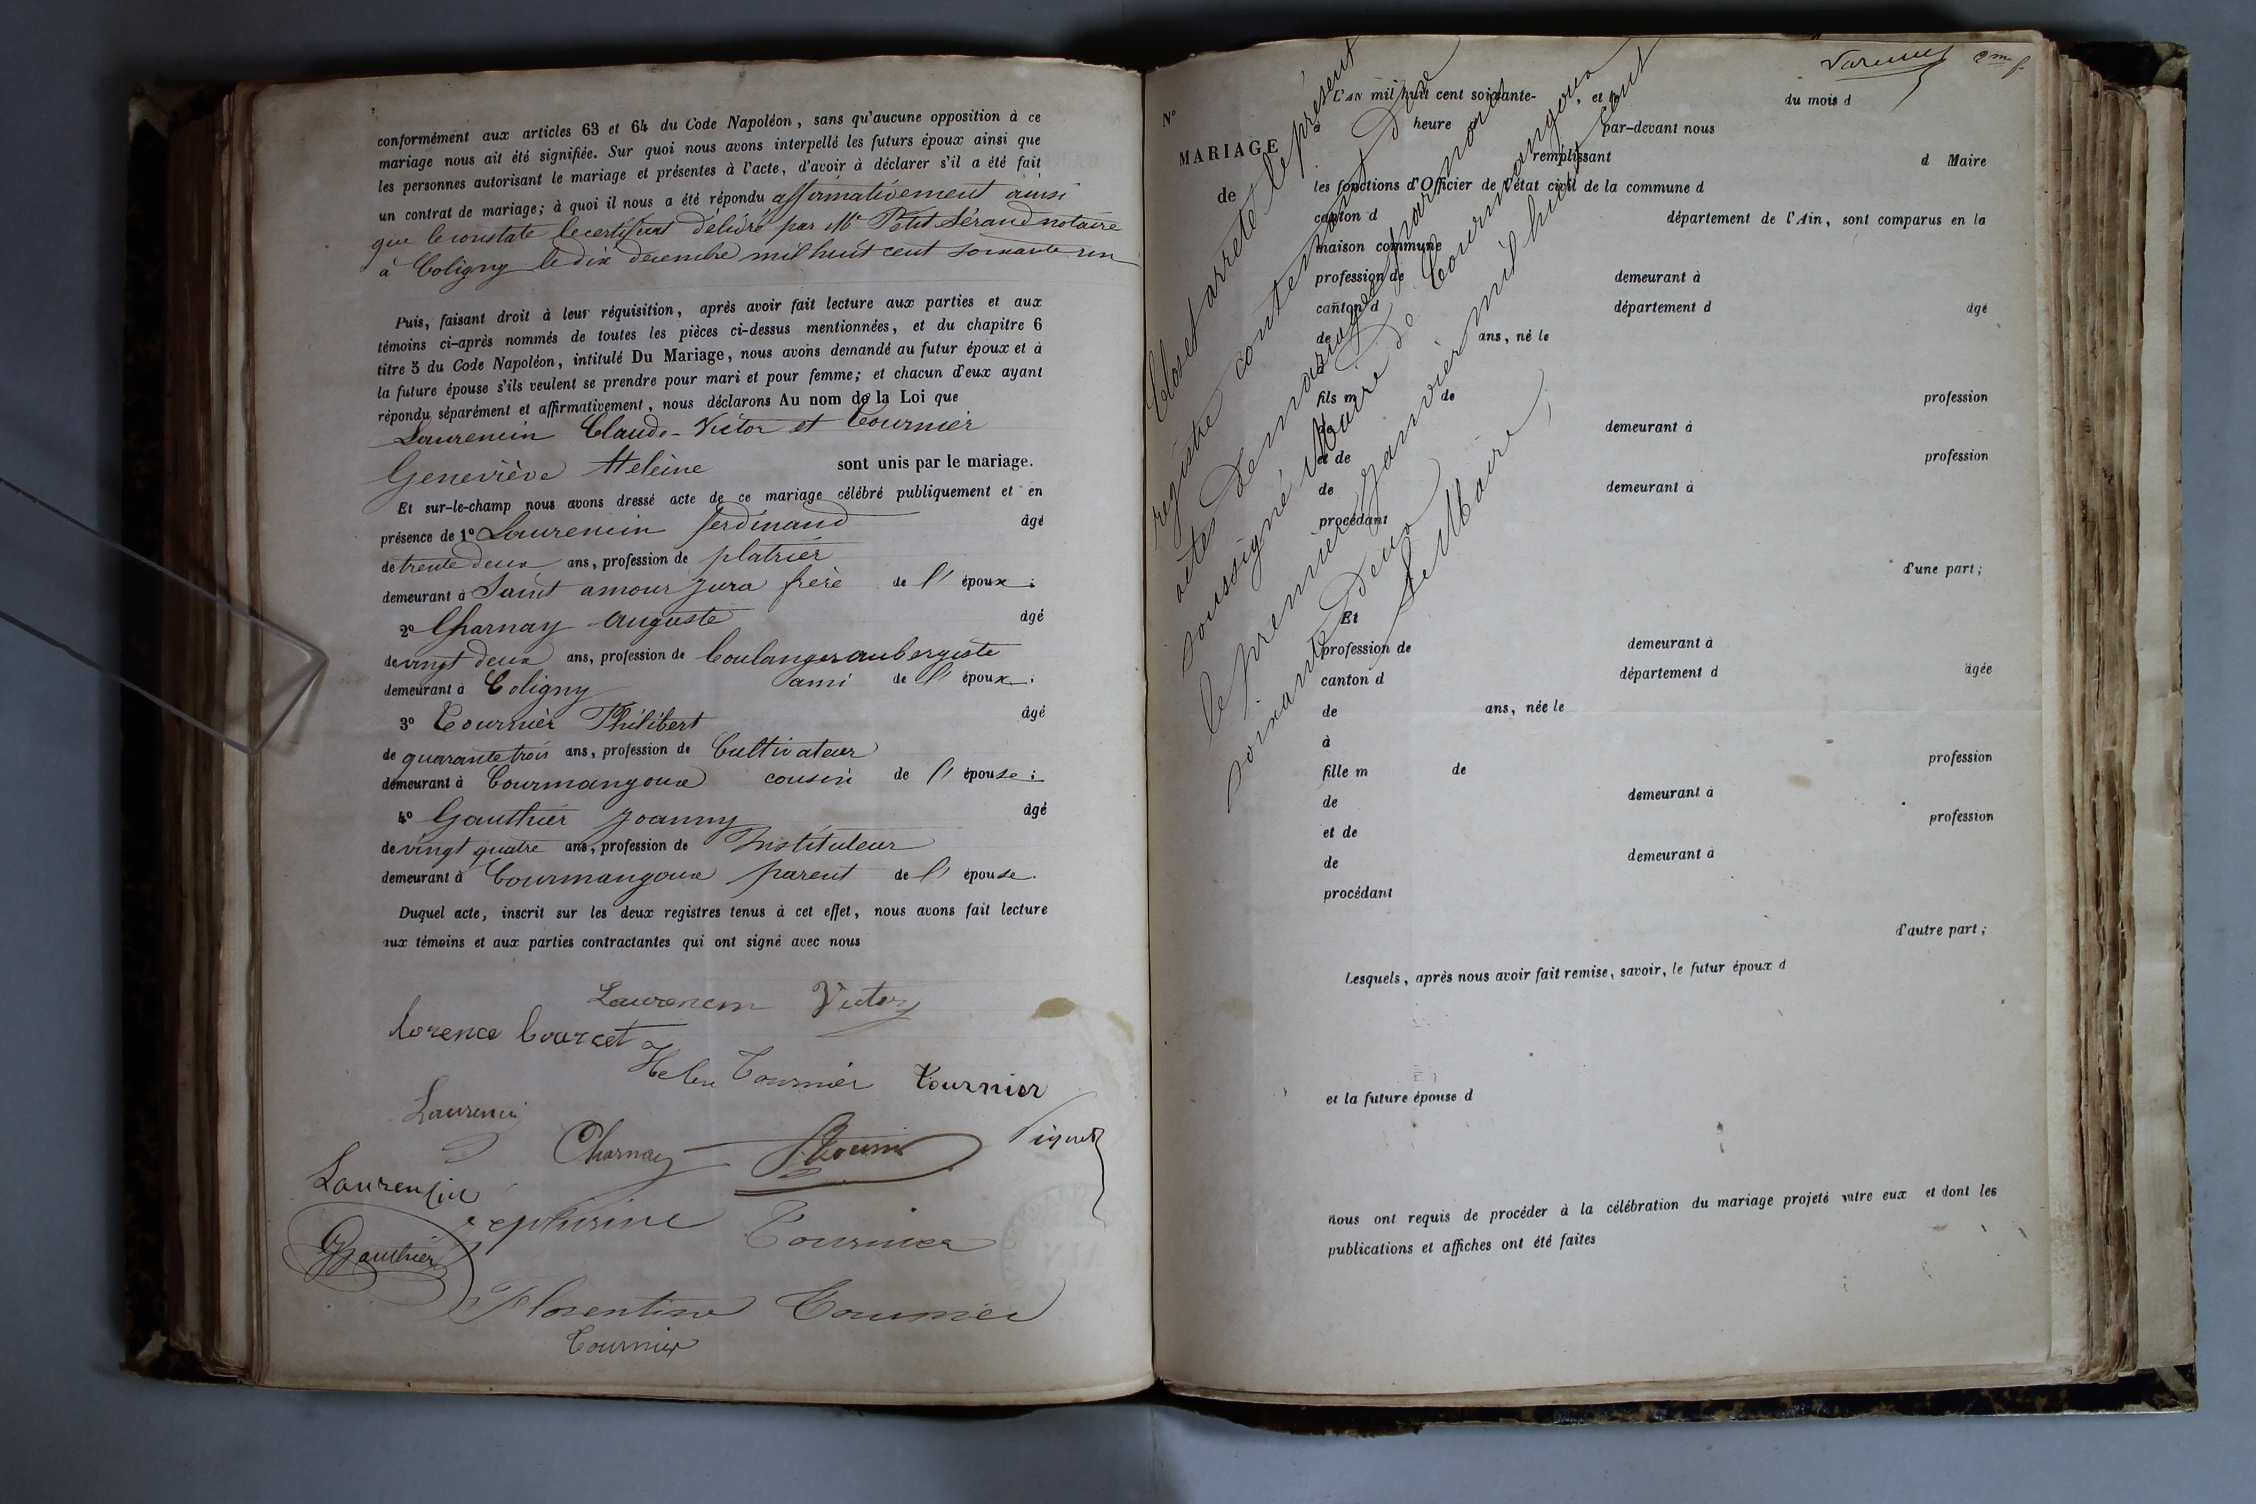 conformément aux articles 63 et 64 du Code Napoléon, sans qu'aucune opposition à ce
mariage nous ait été signifiée. Sur quoi nous avons interpellé les futurs époux ainsi que
les personnes autorisant le mariage et présentes à l'acte, d'avoir à déclarer s'il a été fait
un contrat de mariage; à quoi il nous a été répondu affirmativement ainsi
que le constate le certificat délivré par Me Petit Sérand notaire
à Coligny le dix decembre mil huit cent soixante un
Puis, faisant droit à leur réquisition, après avoir fait lecture aux parties et aux
témoins ci-après nommés de toutes les pièces ci-dessus mentionnées, et du chapitre 6
titre 5 du Code Napoléon, intitulé Du Mariage, nous avons demandé au futur époux et à
la future épouse s'ils veulent se prendre pour mari et pour femme; et chacun d'eux ayant
répondu séparément et affirmativement, nous déclarons Au nom de la Loi que
Laurencin Claude-Victor et Tournier
Geneviève Heleine sont unis par le mariage.
Et sur-le-champ nous avons dressé acte de ce mariage célébré publiquement et en
présence de 1º Laurencin ferdinand âgé
de trente deux ans, profession de platrier
demeurant à Saint amour jura frère de l' époux;
2º Charnay auguste âgé
de vingt deux ans, profession de boulanger aubergiste
demeurant à Coligny ami de l' époux;
3º Tournier Philibert âgé
de quarante trois ans, profession de Cultivateur
demeurant à Courmangoux cousin de l' épouse;
4º Gauthier Joanny âgé
de vingt quatre ans, profession de Instituteur
demeurant à Courmangoux parent de l' épouse.
Duquel acte, inscrit sur les deux registres tenus à cet effet, nous avons fait lecture
aux témoins et aux parties contractantes qui ont signé avec nous
Laurencin Victor
lorence bourcet
Helene Tournier Tournier
Laurencin
Charnay
Laurencin
Tournier
Gauthier
Florentine Tournier
Tournier
2me f
Nº
MARIAGE
de
L'AN mil huit cent soixante- , et le du mois d
à heure par-devant nous
remplissant d Maire
les fonctions d'Officier de l'état civil de la commune d
canton d département de l'Ain, sont comparus en la
maison commune
profession de demeurant à
canton d département d âgé
de ans, né le
fils m de profession
de demeurant à
et de profession
de demeurant à
procédant
d'une part;
Et
profession de demeurant à
canton d département d âgée
de ans, née le
à
fille m de profession
de demeurant à
et de profession
de demeurant à
procédant
d'autre part;
Lesquels, après nous avoir fait remise, savoir, le futur époux d
et la future épouse d
nous ont requis de procéder à la célébration du mariage projeté entre eux et dont les
publications et affiches ont été faites
Clos et arreté le présent
registre contenant dix
actes de mariages par nous
soussigné Maire de Courmangoux
le premier janvier mil huit cent
soixante deux
Le Maire,